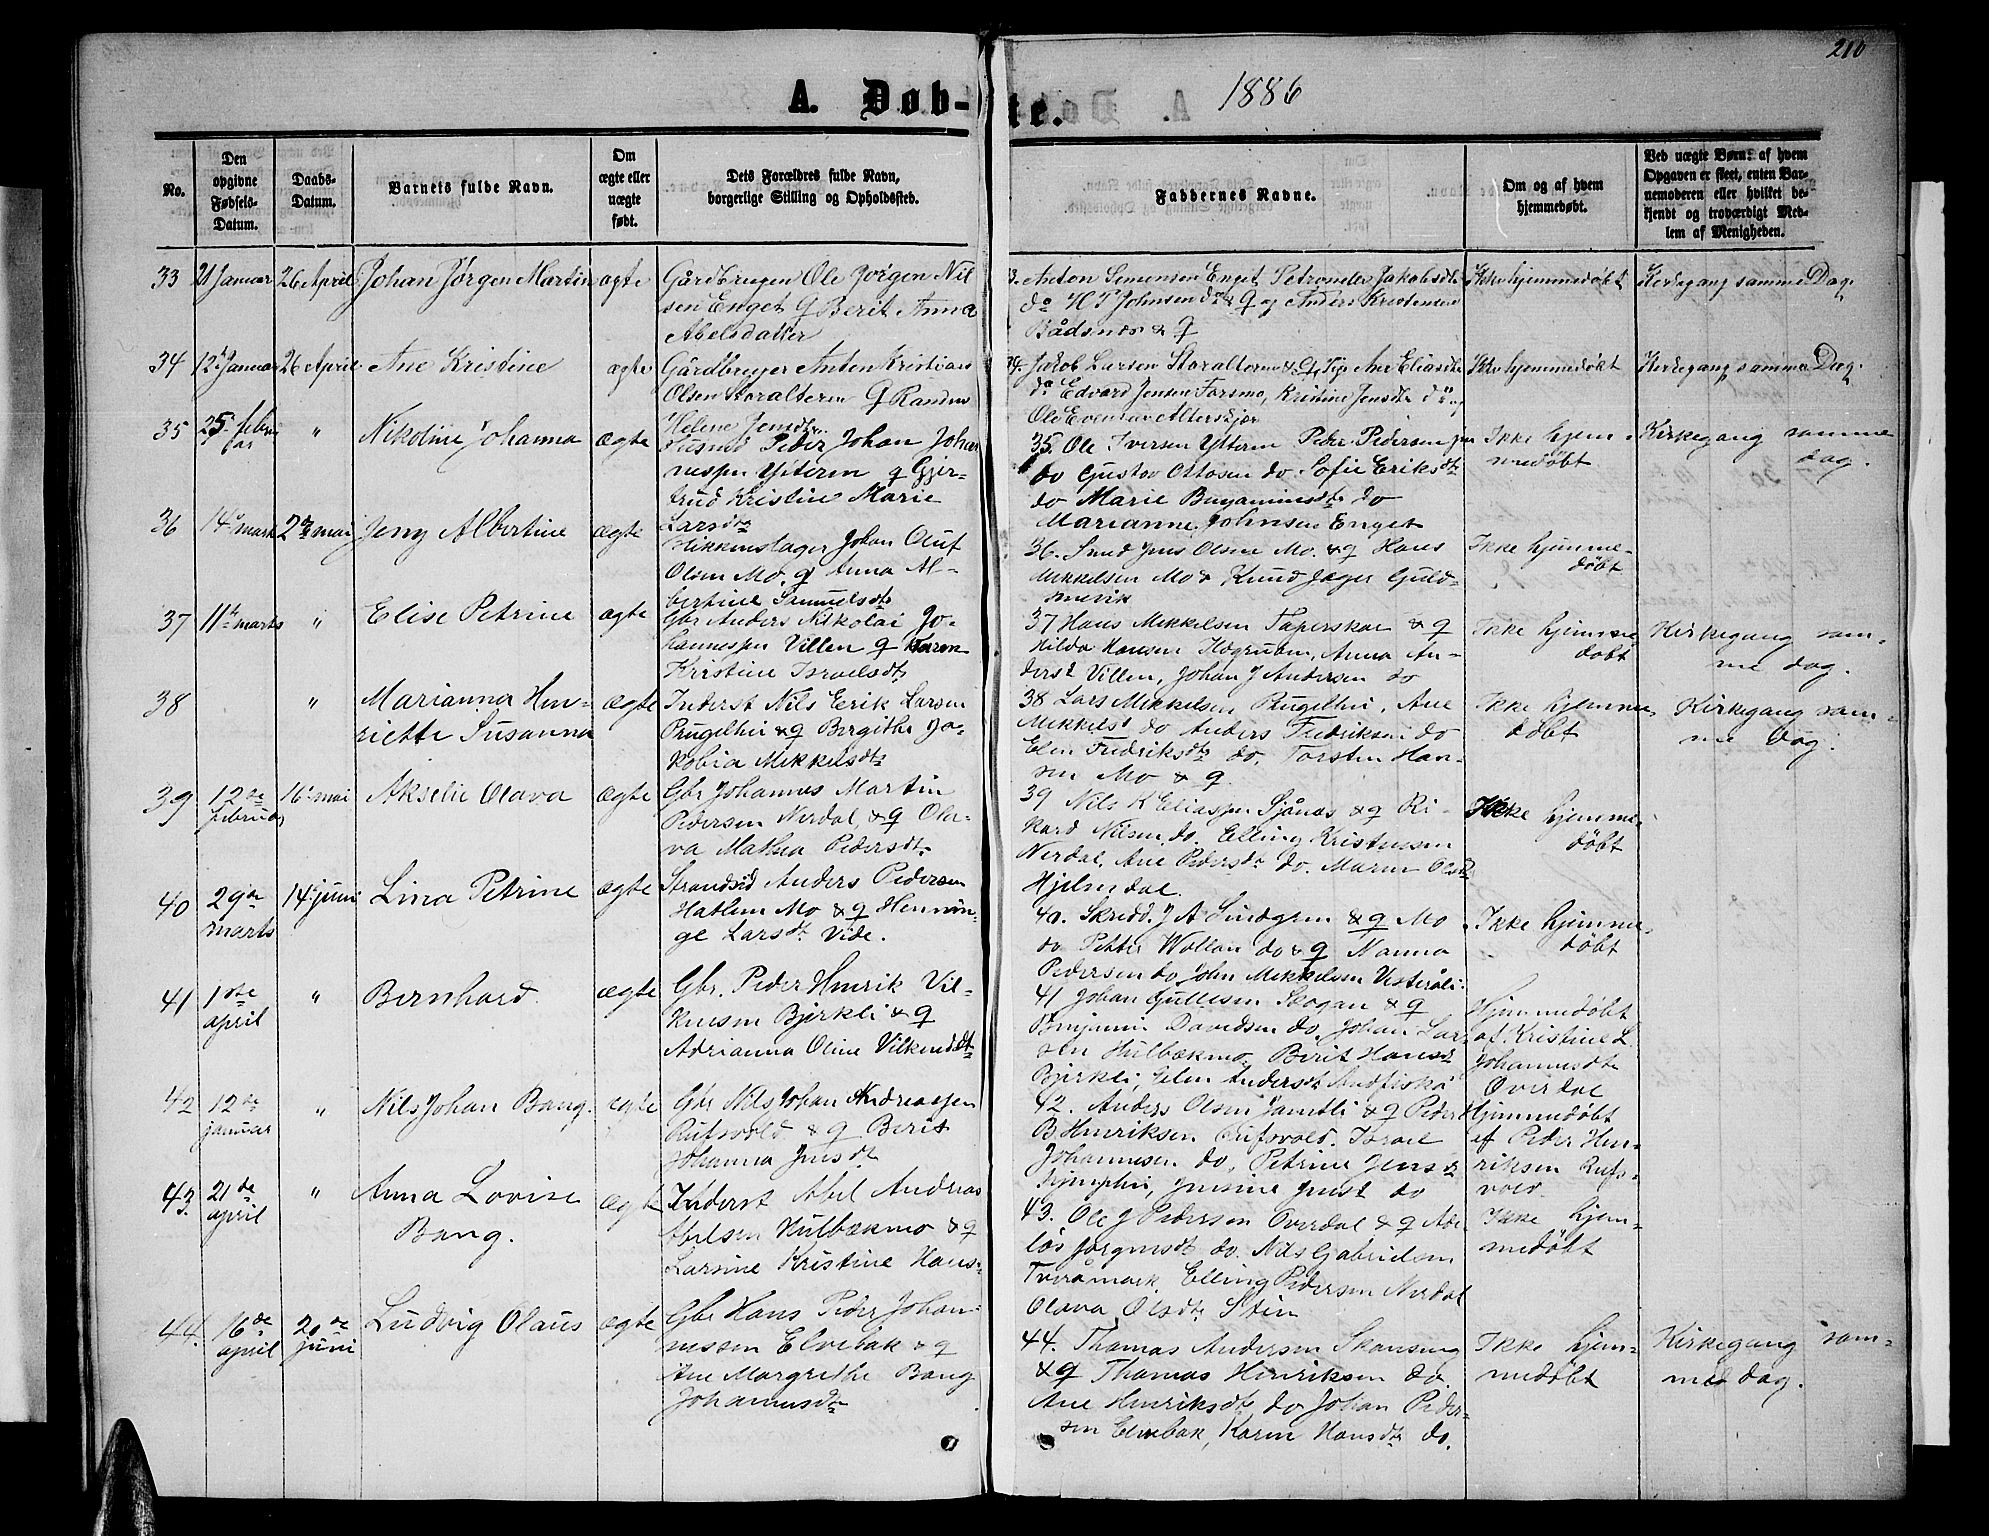 210
A. Døb-te. 1886
No.
Den opgivne Fødsels-Datum.
Daabs-Datum.
Barnets fulde Navn.
Om ægte eller uægte født.
Dets Forældres fulde Navn, borgerlige Stilling og Opholdssted.
Faddernes Navne.
Om og af hvem hjemmedøbt.
Ved uægte Børn: af hvem Opgaven er skeet, enten Barnemoderen eller hvilket bekjendt og troværdigt Medlem af Menigheden.
33 21 Januar 26 April Johan Jørgen Martin ægte
Gårdbruger Ole Jørgen Nil-
sen Enget & Berit Anna
Abelsdatter
Anton Simonsen Enget
do H P Johnsen do & g og Anders Kristensen
Bådsnes & g
Ikke hjemmedøbt
Kirkegang samme Dag.
34 12 Januar 26 April Ane Kristine ægte
Gårdbruger Anton Kristian
Olsen Storalteren
Helene Jensdtr
34. Jakob Larsen Storalteren & g, Pige Ane Eliasdtr
do Edvard Jensen Forsmo, Kristine Jensdtr do og
Ole Evensen Alterskjær
Ikke hjemmedøbt
Kirkegang samme Dag.
35 25 februar " Nikoline Johanna ægte
Husmd Peder Johan Johan-
nessen Ytteren g Gjer-
trud Kristine Marie
Larsdtr
35. Ole Iversen Ytteren Peder Pedersen
do Gustav Ottosen do. Sofie Eriksdtr
do Marie Benjaminsdtr do
Marianne Johnsen Enget
Ikke hjem-
medøbt
Kirkegang samme
dag.
36 14 marts 2den mai Jeny Albertine ægte
Johan Oluf
Olsen Mo. g Anna Al-
bertine Samuelsdtr
36. Smed Jens Olsen Mo. & g Hans
Mikkelsen Mo & Knud Jæger Guld-
smevik
Ikke hjemme-
døbt
37 11te marts " Elise Petrine ægte
Gbr Anders Nikolai Jo-
hannessen Villen g Karen
Kristine Israelsdtr
37 Hans Mikkelsen Taperskar & g
Hilda Hansen Anna An-
dersd Villen, Johan J Andersen do
Ikke hjemme
døbt
Kirkegang sam-
me dag.
38 " Marianna Hen-
riette Susanna ægte
Inderst Nils Erik Larsen
Rugelhei & g Bergithe Ja-
kobia Mikkelsdtr
38 Lars Mikkelsen Rugelhei, Ane
Mikkelsd do Anders Fredriksen do
Elen Fredriksdtr do, Torsten Han-
sen Mo & g
Ikke hjemme
døbt
Kirkegang sam-
me dag.
39 12te februar 16 mai Akselie Olava ægte
Gbr Johannes Martin
Pedersen Nerdal, & g Ola-
va Mathea Pedersdtr
39 Nils K Eliassen Sjånæs & g Ri-
kard Nilsen do. Elling Kristensen
Nerdal, Ane Pedersdtr do. Maren Olsd
Hjelmedal.
Ikke hjemme-
døbt
40 29de marts 14 juni Lina Petrine ægte
Strandsid Anders Pedersen
Hatlem Mo & g Hennin-
ge Larsdtr Vide.
40. Skredd. J A Lindgren & g Mo
do Petter Wollan do & g Nanna
Pedersen do John Mikkelsen Vesteråli.
Ikke hjemme-
døbt
41 1ste april " Bernhard. ægte
Gbr. Peder Henrik Vil-
kensen Bjerkli & g
Adrianna Oline Vilkensdtr
41 Johan Gullesen Skogan & g
Benjamin Davidsen do, Johan Lar-
sen Hulbækmo, Berit Hansd
Bjerkli, Elen Andersdtr
Hjemmedøbt
af Kristine L.
Johannesdtr
Overdal
42 12te januar " Nils Johan Bang. ægte
Gbr Nils Johan Andreassen
Rufsvold & g Berit
Johanna Jensdtr
42. Anders Olsen Jamtli & g Peder
B Henriksen Rufsvold. Israel
Johannesen do, Petrine Jensd
Jensine Jensd do
Hjemmedøbt
af Peder Hen-
riksen Rufs-
vold.
43. 21de april " Anna Lovise
Bang. ægte
Inderst Abel Andreas
Abelsen Hulbækmo & g
Larsine Kristine Hans-
43. Ole J Pedersen Overdal & g
Jørgensdtr do. Nils Gabrielsen
Tveråmoen, Elling Pedersen Nerdal
Olava Olsdtr Stien
Ikke hjem-
medøbt
44. 16de april 20de juni Ludvig Olaus ægte
Gbr Hans Peder Johan-
nessen Elvebak & g
Ane Margrethe Bang
Johannesdtr
44. Thomas Andersen Skansen
& g Thomas Henriksen do.
Ane Henriksdtr do Johan Peder-
sen Elvebak, Karen Hansdtr do.
Ikke hjem-
medøbt
Kirkegang sam-
me dag.